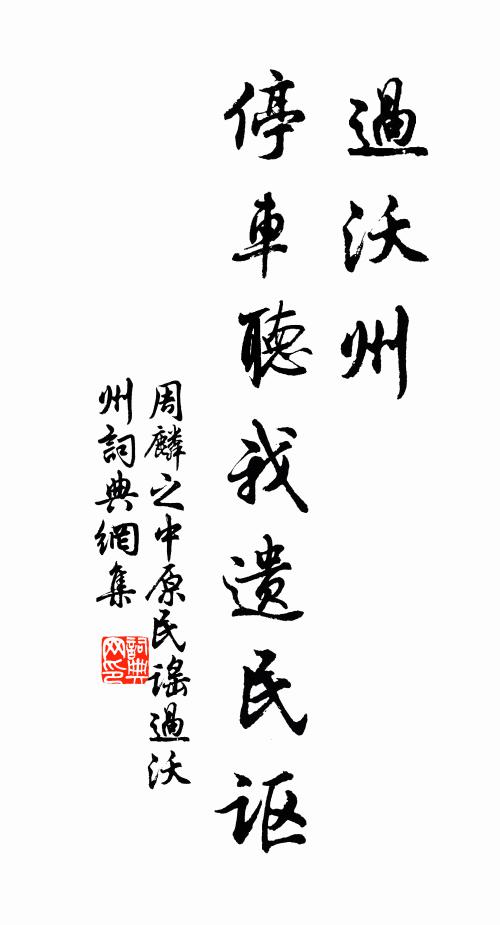 過沃州
停車聽我遺民讴
周麟之中原民謠過沃
州詞典網集
詞典
网印